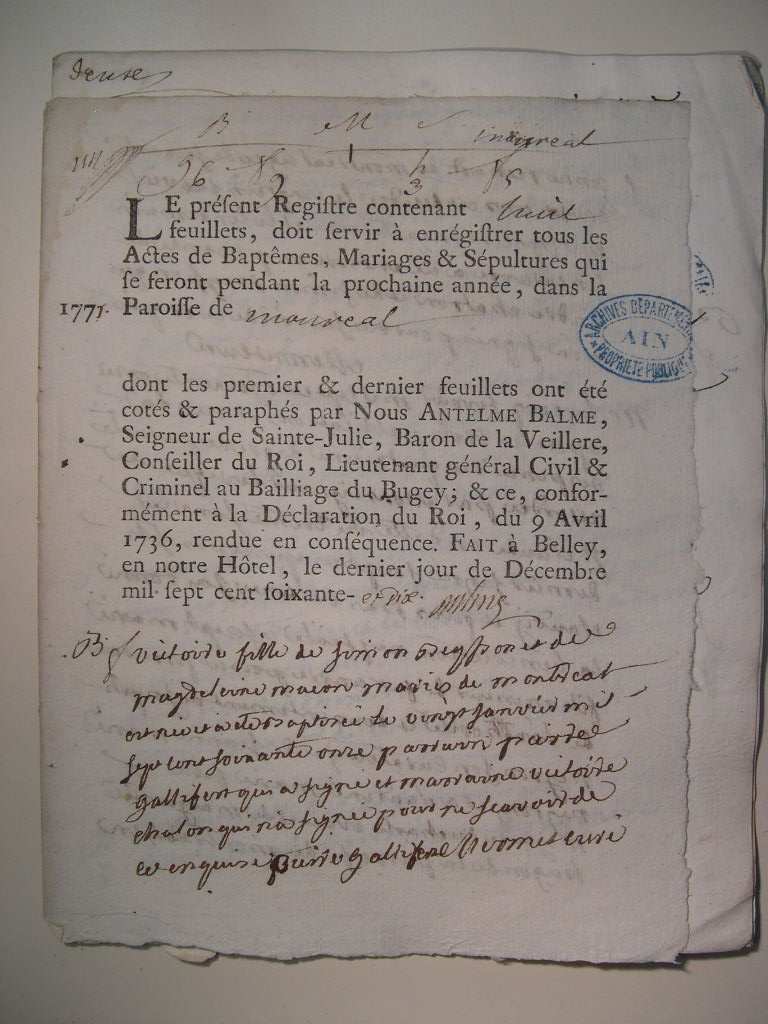 B M S montreal
96 2 3 15
LE préſent Regiſtre contenant huit
feuillets, doit ſervir à enrégiſtrer tous les
Actes de Baptêmes, Mariages & Sépultures qui
ſe feront pendant la prochaine année, dans la
1771. Paroiſſe de montreal
ARCHIVES DÉPARTEMENTALES
AIN
PROPRIÉTÉ PUBLIQUE
dont les premier & dernier feuillets ont été
cotés & paraphés par Nous ANTELME BALME,
Seigneur de Sainte-Julie, Baron de la Veillere,
Conſeiller du Roi, Lieutenant général Civil &
Criminel au Bailliage du Bugey; & ce, confor-
mément à la Déclaration du Roi, du 9 Avril
1736, rendue en conſéquence. FAIT à Belley,
en notre Hôtel, le dernier jour de Décembre
mil ſept cent ſoixante- et dix.
B victoire fille de simon et de
magdeleine macon mariés de montreal
est née et a eté baptisée le vingt janvier mil
sept cent soixante onze parrain pierre
gallifert qui a signé et marraine victoire
chalon qui n'a signé pour ne scavoir de
ce enquise pierre gallifert curé